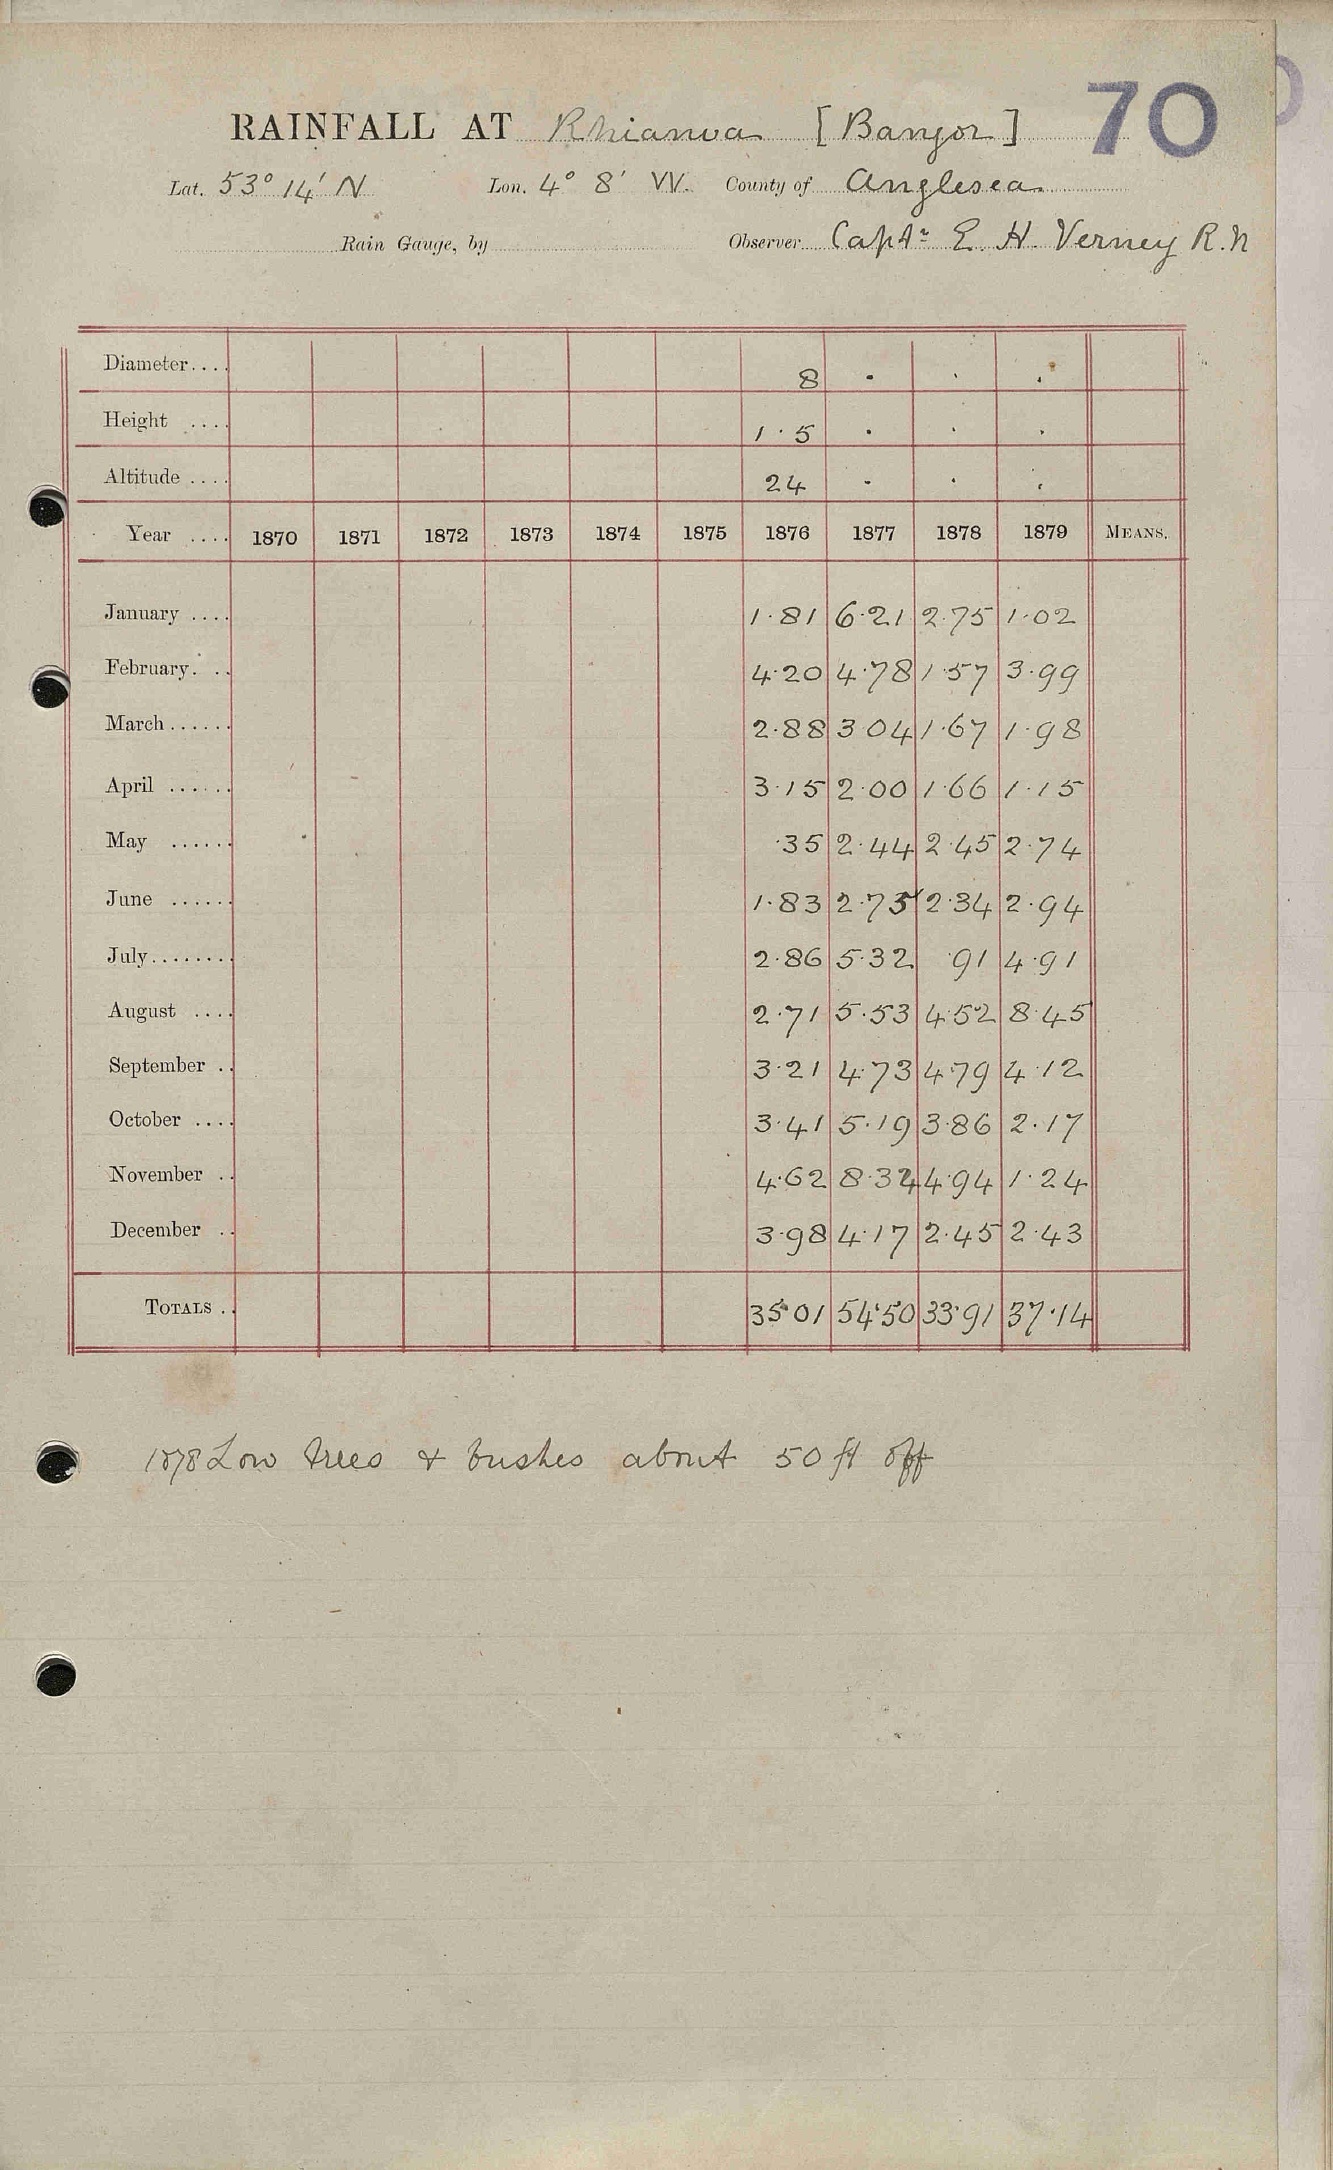 70
RAINFALL AT Rhianva [Bangor]
Lat. 53° 14' N Lon. 4° 8' W. County of Anglesea
Rain Gauge, by Observer Captn E. H. Verney R.N
Diameter.... 8 . . .
Height .... 1.5 . . .
Altitude .... 24 . . .
Year .... 1870 1871 1872 1873 1874 1875 1876 1877 1878 1879 MEANS.
January .... 1.81 6.21 2.75 1.02
February. .. 4.20 4.78 1.57 3.99
March...... 2.88 3.04 1.67 1.98
April ...... 3.15 2.00 1.66 1.15
May ...... .35 2.44 2.45 2.74
June ...... 1.83 2.75 2.34 2.94
July........ 2.86 5.32 .91 4.91
August .... 2.71 5.53 4.52 8.45
September .. 3.21 4.73 4.79 4.12
October .... 3.41 5.19 3.86 2.17
November .. 4.62 8.34 4.94 1.24
December .. 3.98 4.17 2.45 2.43
TOTALS .. 35.01 54.50 33.91 37.14
1878 Low trees & bushes about 50 ft off